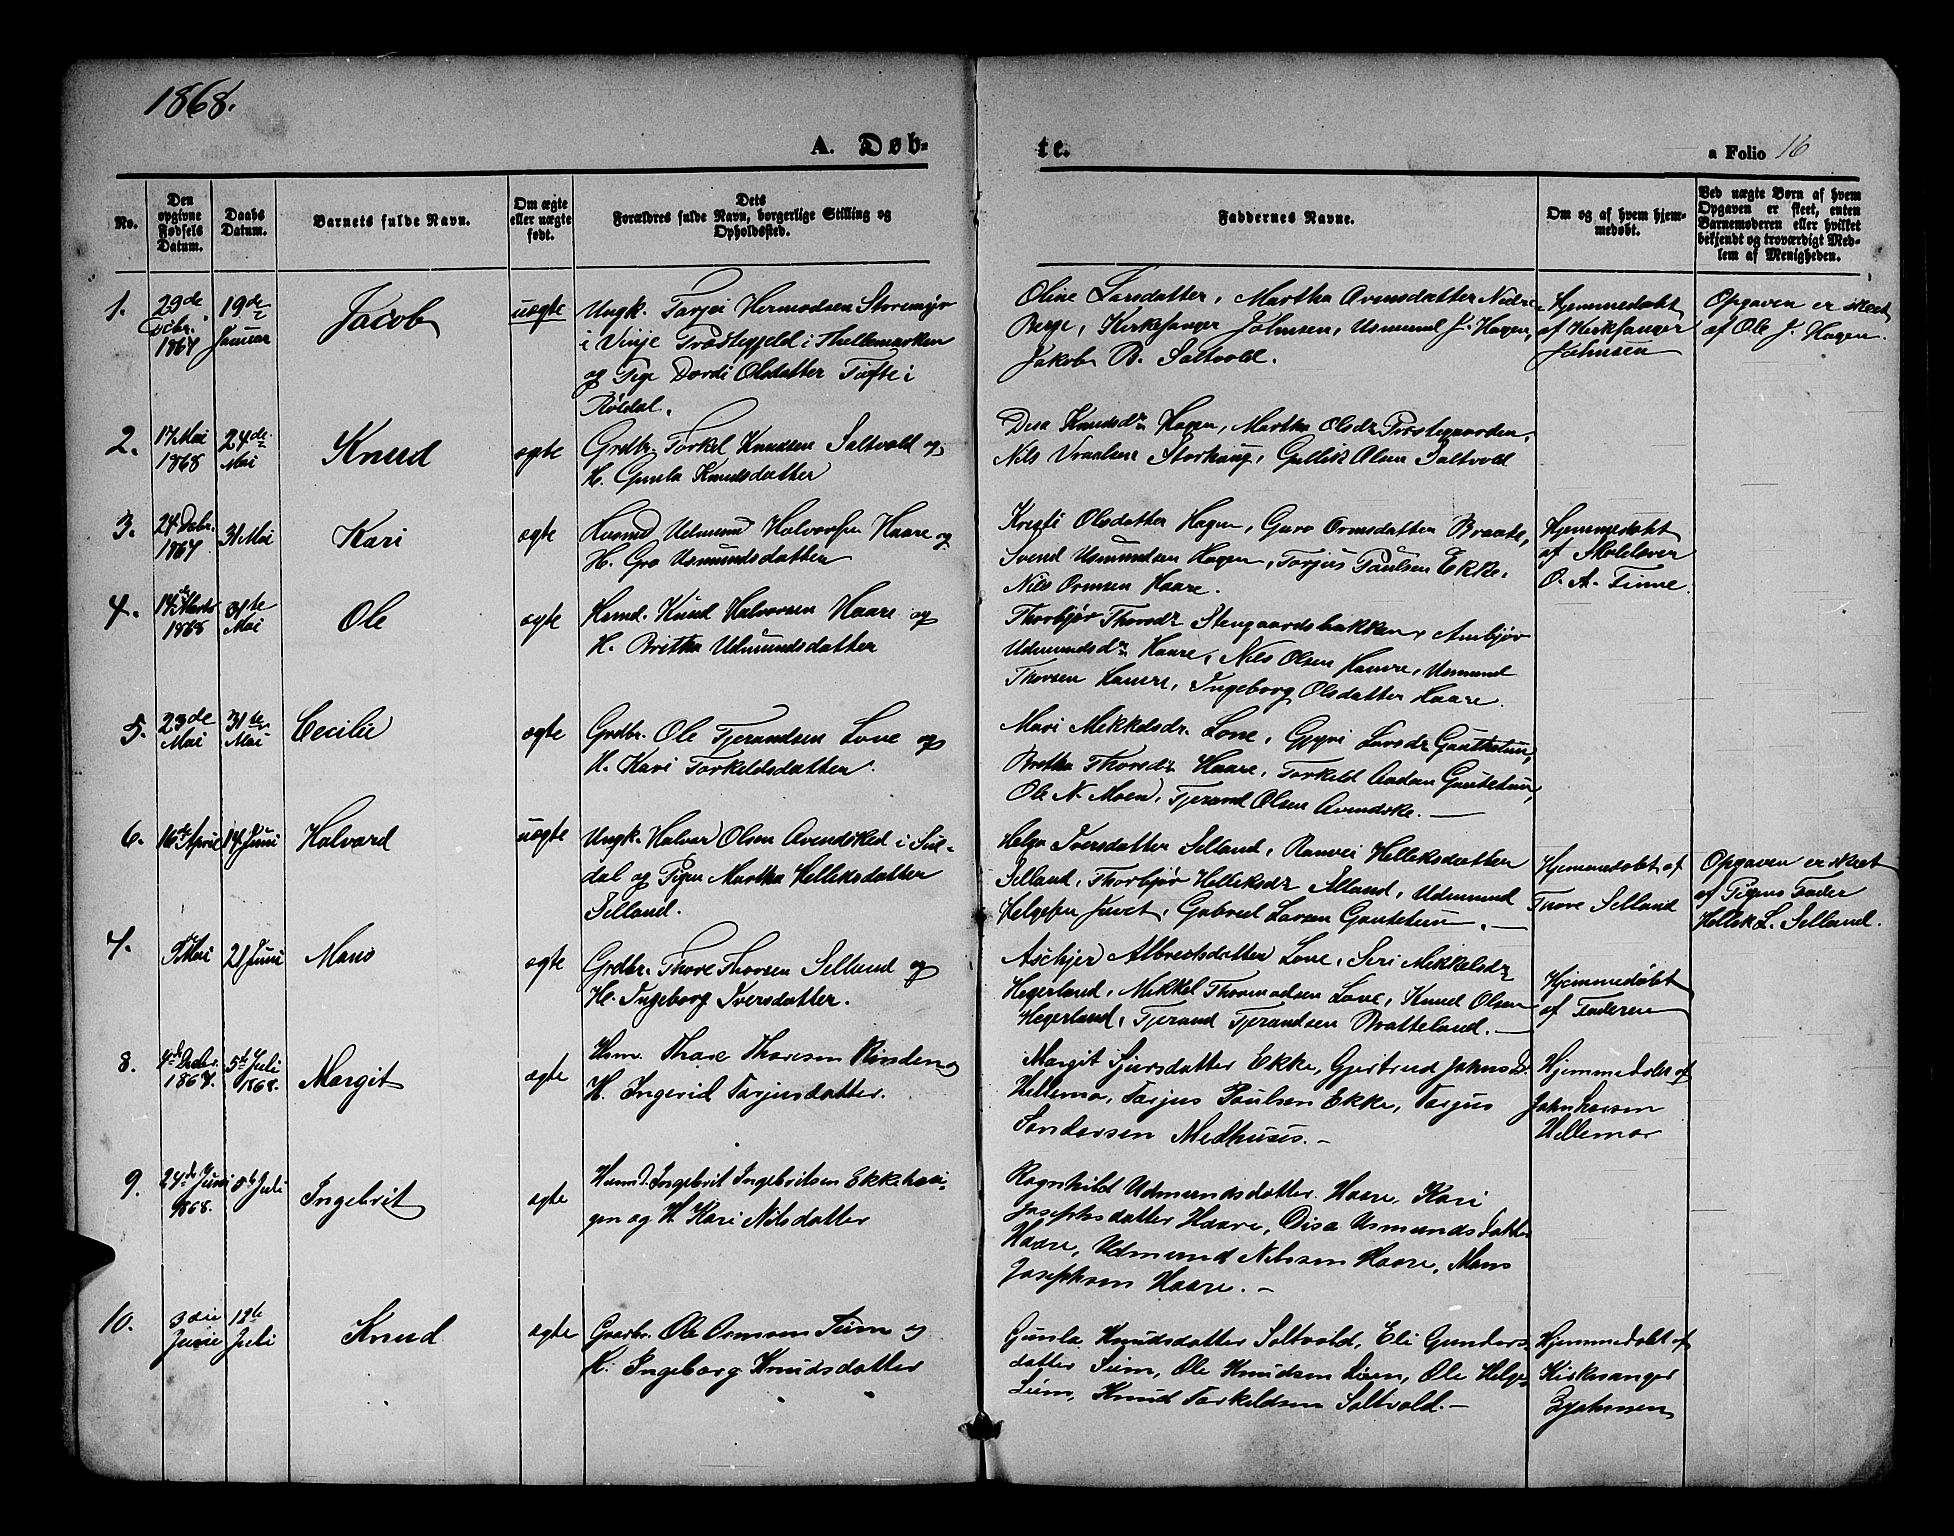 1868.
A. Døb-
te.
a Folio 16
No.
Den
opgivne
Fødsels
Datum.
Daabs
Datum.
Barnets fulde Navn.
Om ægte
eller uægte
født.
Dets
Forældres fulde Navn, borgerlige Stilling og
Opholdssted.
Faddernes Navne.
Om og af hvem hjem-
medøbt.
Ved uægte Børn af hvem
Opgaven er skeet, enten
Barnemoderen eller hvilket
bekjendt og troværdigt Med-
lem af Menigheden.
1.
29de
Octbr.
1867
19de
Januar
Jacob
uægte
Ungk. Tarjei Hermodsen Storemyr
i Vinje Præstegjeld i Thellemarken
og Pige Dordi Olsdatter Tufte i
Røldal.
Oline Larsdatter, Martha Avensdatter Nedre
Berge, Kirkesanger Johnsen, Usmund J. Hagen,
Jakob B. Saltvold.
Hjemmedøbt
af Kirkesanger
Johnsen
Opgaven er skeet
af Ole J. Hagen.
2.
17 Mai
1868
24de
Mai
Knud
ægte
Grdbr. Torkel Knudsen Saltvold og
H. Gunla Knudsdatter
Disa Knudsdr Hagen, Martha Olsdr Prestegaarden,
Nils Vraalsen Storhaug, Gullik Olsen Saltvold
3.
24 Decbr.
1867
31 Mai
Kari
ægte
Husmd Udmund Halvorsen Haare og
H. Gro Usmundsdatter
Kristi Olsdatter Hagen, Guro Ormsdatter Braate,
Svend Usmundsen Hagen, Torjus Paulsen Ekke,
Nils Ormsen Haare.
Hjemmedøbt
af Skolelærer
O. A. Time.
4.
14de Marts
1868
31te
Mai
Ole
ægte
Husmd. Knud Halvorsen Haare og
H. Britha Udmundsdatter
Thorbjør Thorsdr Stengaardsbakken, Anbjør
Udmundsdr Haare, Nils Olsen Haare, Usmund
Thorsen Haare, Ingeborg Olsdatter Haare.
5.
23de
Mai
31te
Mai
Cecilie
ægte
Grdbr. Ole Tjerandsen Love og
H. Kari Torkeldsdatter.
Mari Mekkelsdr. Love, Gyri Larsdr Gautetun,
Britha Thorsdr Haare, Torkeld Aadsen Gautetun,
Ole N. Moen, Tjerand Olsen Avendske. —
6.
16de April
14 Juni
Halvard
uægte
Ungk. Halvar Olsen Avendsked i Sul-
dal og Pigen Martha Helleksdatter
Selland.
Helga Iversdatter Selland, Ranvei Helleksdatter
Selland, Thorbjør Helleksdr Selland, Udmund
Helgesen Juvet, Gabriel Larsen Gautetun. —
Hjemmedøbt af
Thore Selland
Opgaven er skeet
af Pigens Fader
Hellek L. Selland.
7.
9de Mai
21 Juni
Mons
ægte
Grdbr. Thore Thorsen Selland og
H. Ingeborg Iversdatter.
Aschjer Albredsdatter Love, Siri Mikkelsdr
Hegerland, Mekkel Thormodsen Love, Knud Olsen
Hegerland, Tjerand Tjerandsen Bratteland. —
Hjemmedøbt
af Faderen
8.
4de Decbr
1867.
5te Juli
1868.
Margit
ægte
Hsm. Thore Thoresen Rinden og
H. Ingerid Tarjusdatter.
Margit Sjursdatter Ekke, Gjertrud Johnsdr
Hellemo, Tarjus Paulsen Ekke, Tarjus
Sondersen Medhuses. —
Hjemmedøbt af
John Larsen
Hellemo
9.
24de Juni
1868.
Juli
Ingebrit
ægte
Husmd. Ingebrit Ingebritsen Ekkehau-
gen og H. Kari Nilsdatter
Ragnhild Udmundsdatter Haare, Kari
Josephsdatter Haare, Disa Usmundsdatter
Haare, Udmund Nilssen Haare, Mons
Josephsen Haare. —
10.
3die
Junie
18te
Juli
Knud
ægte
Gaardbr. Ole Osmosen Seim og
H. Ingeborg Knudsdatter
Gunla Knudsdatter Saltvold, Eli Gunders-
datter Seim, Ole Knudsen Seim, Ole Helges
Seim, Knud Torkeldsen Saltvold. —
Hjemmedøbt af
Kirkesanger
Johnsen